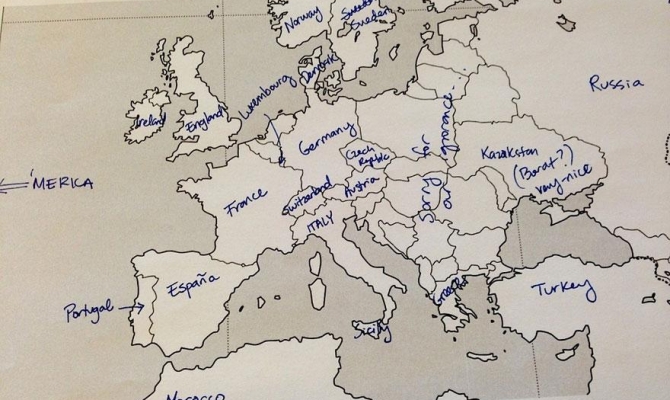 Norway
Sweden
Sweden
Denmark
Russia
Luxembourg
Ireland
England
Germany
Sorry for
our ignorance.
Czech
Republic
Kazakhstan
(Borat?)
very-nice
← 'MERICA
France
Switzerland
Austria
ITALY
España
Portugal →
Greece
Turkey
Sicily
Morocco